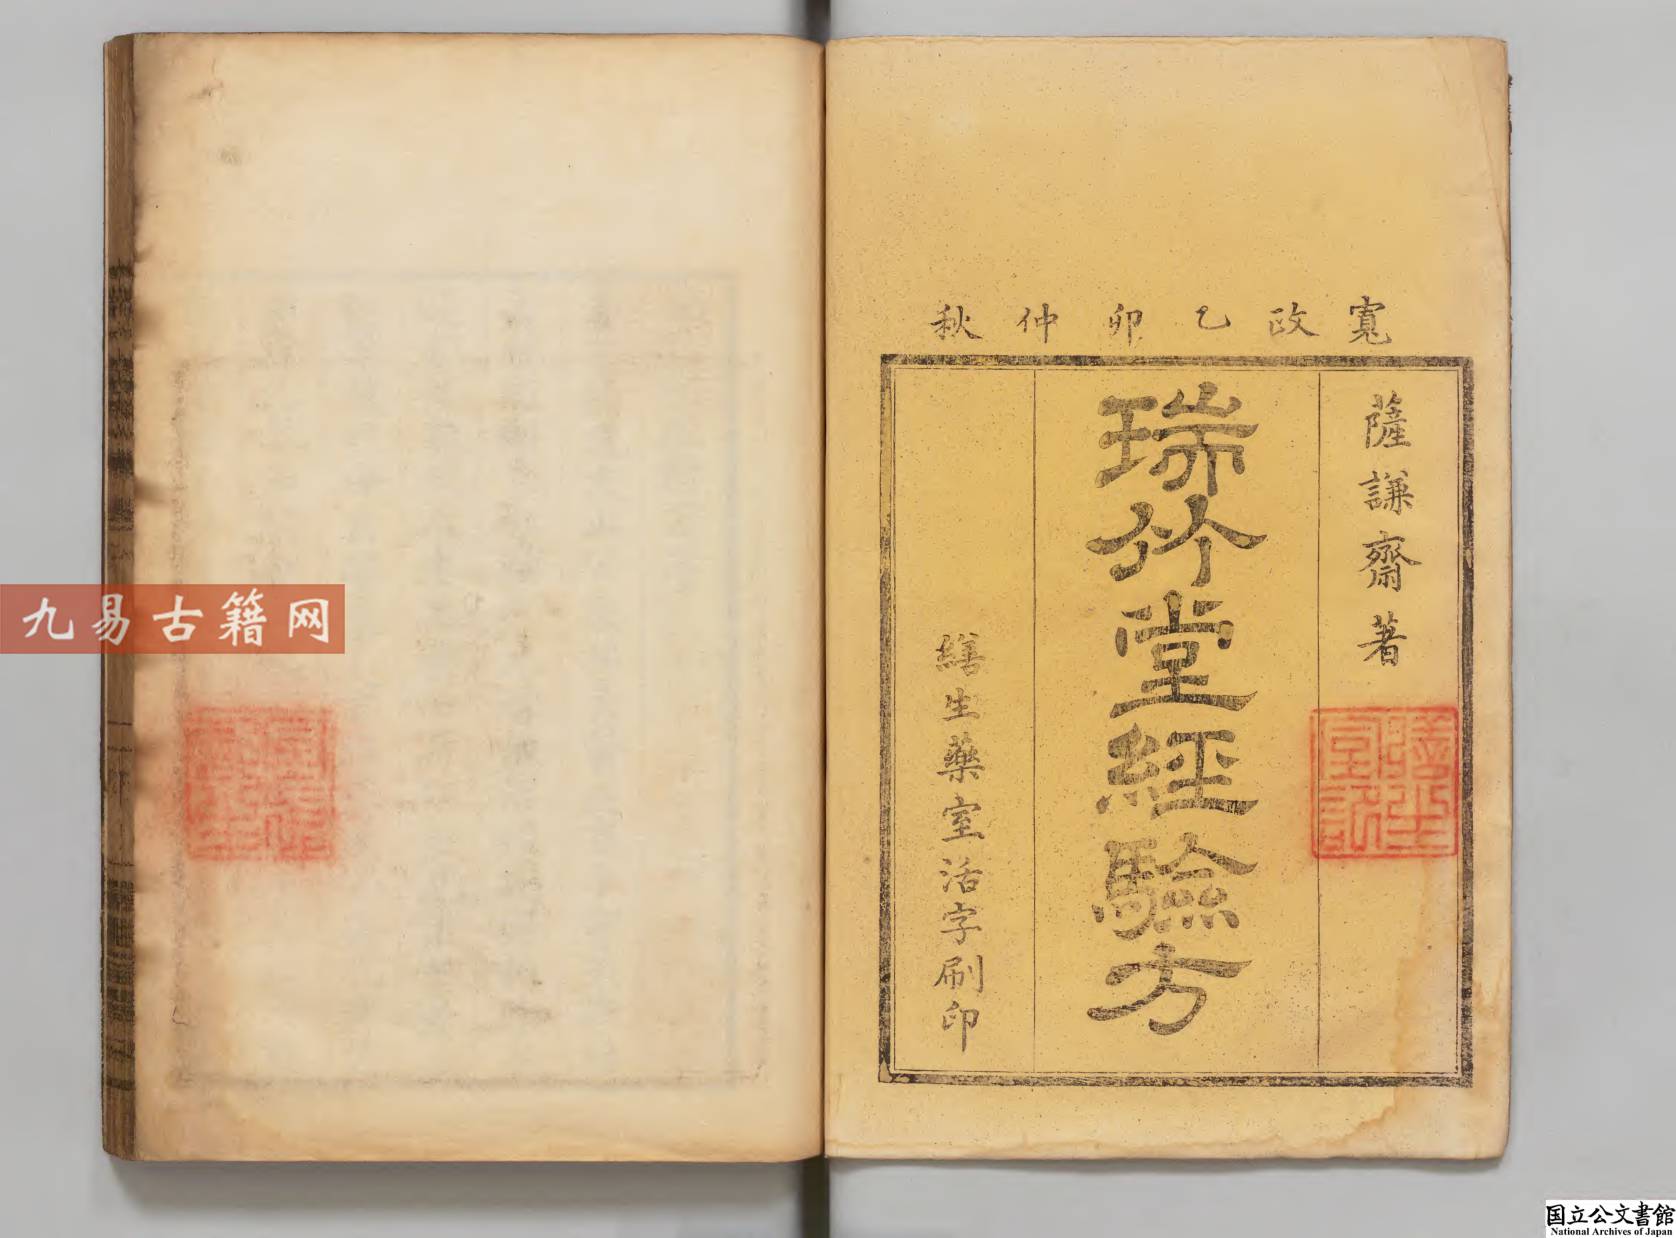 寬政乙卯仲秋
薩謙齋著
瑞竹堂經驗方
繕生藥室活字刷印
九易古籍网
国立公文書館
National Archives of Japan